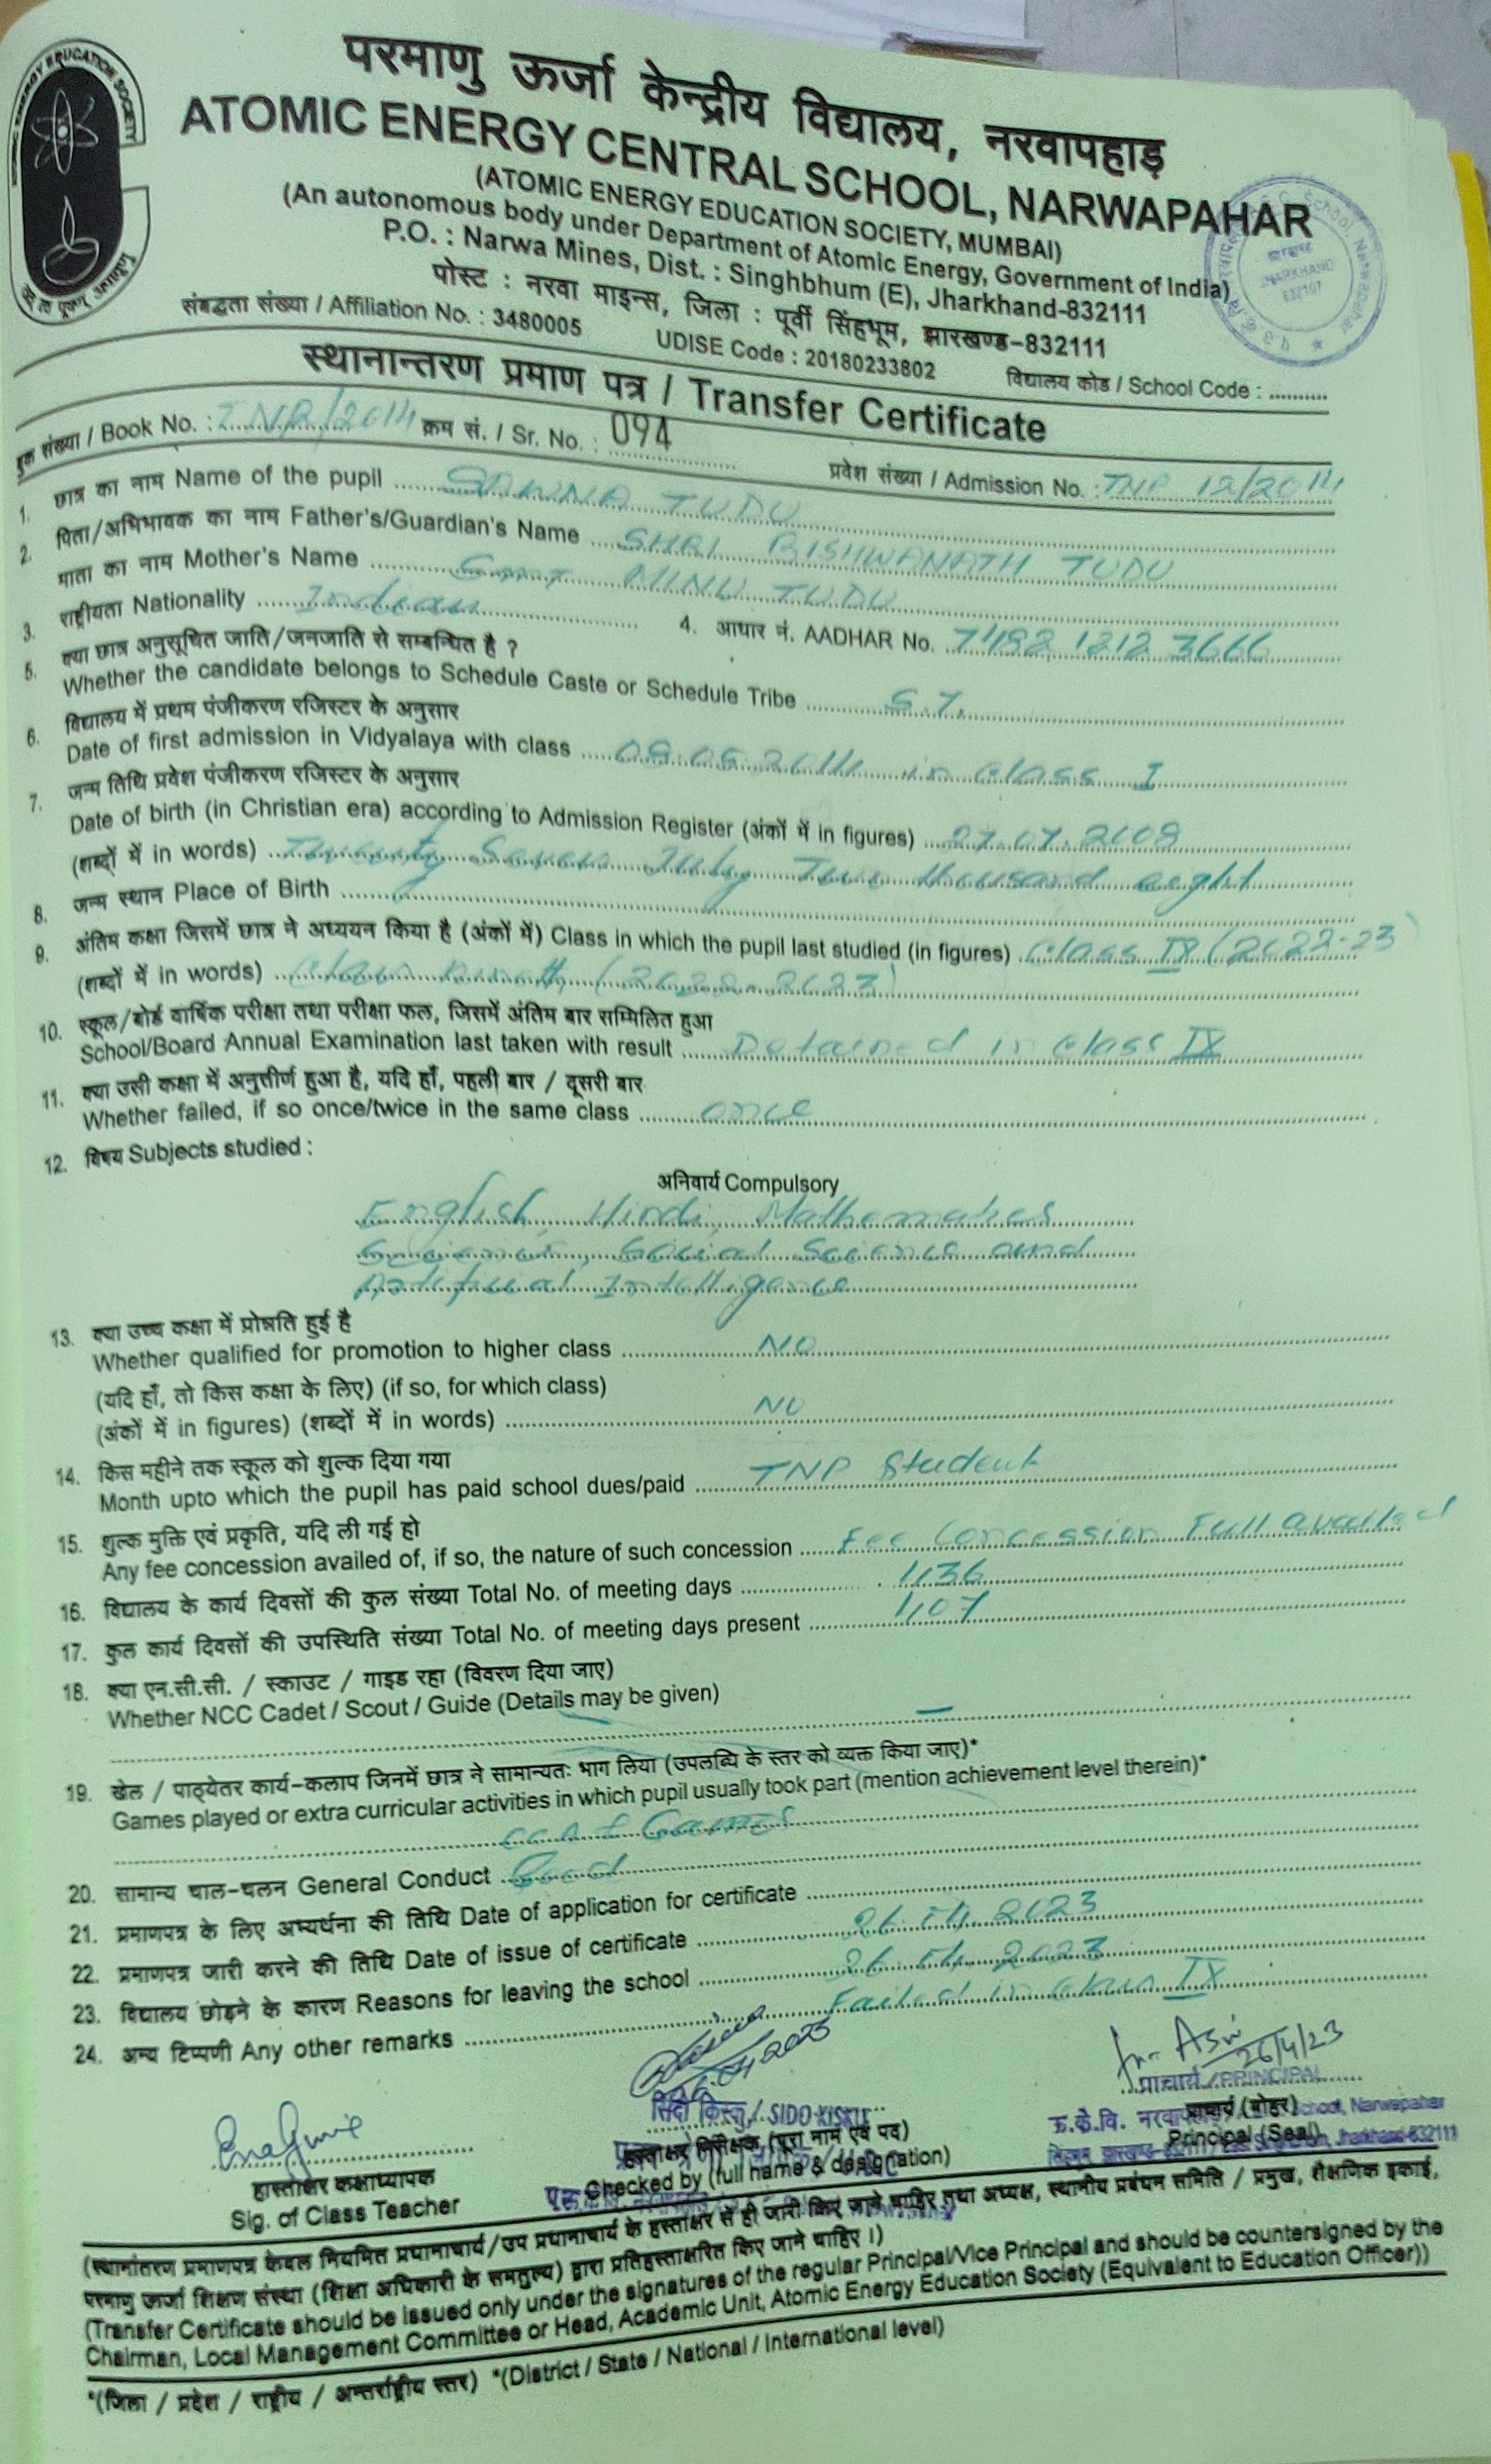 परमाणु ऊर्जा केन्द्रीय विद्यालय, नरवापहाड़
ATOMIC ENERGY CENTRAL SCHOOL, NARWAPAHAR
(ATOMIC ENERGY EDUCATION SOCIETY, MUMBAI)
(An autonomous body under Department of Atomic Energy, Government of India)
P.O. : Narwa Mines, Dist. : Singhbhum (E), Jharkhand-832111
पोस्ट : नरवा माइन्स, जिला : पूर्वी सिंहभूम, झारखण्ड-832111
संबद्धता संख्या / Affiliation No. : 3480005 UDISE Code : 20180233802 विद्यालय कोड / School Code : ..........
स्थानान्तरण प्रमाण पत्र / Transfer Certificate
बुक संख्या / Book No. : TNP/2014 क्रम सं. / Sr. No. : 094 प्रवेश संख्या / Admission No. : TNP 12/2014
1. छात्र का नाम Name of the pupil SAWNA TUDU
2. पिता/अभिभावक का नाम Father's/Guardian's Name SHRI BISHWANATH TUDU
माता का नाम Mother's Name Smt MINU TUDU
3. राष्ट्रीयता Nationality Indian 4. आधार नं. AADHAR No. 7182 1212 3666
5. क्या छात्र अनुसूचित जाति/जनजाति से सम्बन्धित है ?
Whether the candidate belongs to Schedule Caste or Schedule Tribe S.T.
6. विद्यालय में प्रथम पंजीकरण रजिस्टर के अनुसार
Date of first admission in Vidyalaya with class 08.05.2014 in Class I
7. जन्म तिथि प्रवेश पंजीकरण रजिस्टर के अनुसार
Date of birth (in Christian era) according to Admission Register (अंकों में in figures) 27.07.2008
(शब्दों में in words) Twenty Seven July Two thousand eight
8. जन्म स्थान Place of Birth
9. अंतिम कक्षा जिसमें छात्र ने अध्ययन किया है (अंकों में) Class in which the pupil last studied (in figures) Class IX (2022-23)
(शब्दों में in words) Class nineth (2022-2023)
10. स्कूल/बोर्ड वार्षिक परीक्षा तथा परीक्षा फल, जिसमें अंतिम बार सम्मिलित हुआ
School/Board Annual Examination last taken with result Detained in class IX
11. क्या उसी कक्षा में अनुत्तीर्ण हुआ है, यदि हाँ, पहली बार / दूसरी बार
Whether failed, if so once/twice in the same class once
12. विषय Subjects studied :
अनिवार्य Compulsory
English, Hindi, Mathematics
Science, Social Science and
Artificial Intelligence
13. क्या उच्च कक्षा में प्रोन्नति हुई है
Whether qualified for promotion to higher class NO
(यदि हाँ, तो किस कक्षा के लिए) (if so, for which class)
(अंकों में in figures) (शब्दों में in words) NO
14. किस महीने तक स्कूल को शुल्क दिया गया
Month upto which the pupil has paid school dues/paid TNP Student
15. शुल्क मुक्ति एवं प्रकृति, यदि ली गई हो
Any fee concession availed of, if so, the nature of such concession Fee Concession Full availed
16. विद्यालय के कार्य दिवसों की कुल संख्या Total No. of meeting days 136
17. कुल कार्य दिवसों की उपस्थिति संख्या Total No. of meeting days present 107
18. क्या एन.सी.सी. / स्काउट / गाइड रहा (विवरण दिया जाए)
Whether NCC Cadet / Scout / Guide (Details may be given) —
19. खेल / पाठ्येतर कार्य-कलाप जिनमें छात्र ने सामान्यतः भाग लिया (उपलब्धि के स्तर को व्यक्त किया जाए)*
Games played or extra curricular activities in which pupil usually took part (mention achievement level therein)*
CCA & Games
20. सामान्य चाल-चलन General Conduct Good
21. प्रमाणपत्र के लिए अभ्यर्थना की तिथि Date of application for certificate 26.04.2023
22. प्रमाणपत्र जारी करने की तिथि Date of issue of certificate 26.04.2023
23. विद्यालय छोड़ने के कारण Reasons for leaving the school Failed in class IX
24. अन्य टिप्पणी Any other remarks
26/4/23
प्राचार्य / PRINCIPAL
सिदो किस्कु / SIDO KISKU
हस्ताक्षर निरीक्षक (पूरा नाम एवं पद)
Checked by (full name & designation)
प्राचार्य (मोहर)
Principal (Seal)
हास्तोक्षर कक्षाध्यापक
Sig. of Class Teacher
(स्थानांतरण प्रमाणपत्र केवल नियमित प्रधानाचार्य/उप प्रधानाचार्य के हस्ताक्षर से ही जारी किए जाने चाहिए तथा अध्यक्ष, स्थानीय प्रबंधन समिति / प्रमुख, शैक्षणिक इकाई,
परमाणु ऊर्जा शिक्षण संस्था (शिक्षा अधिकारी के समतुल्य) द्वारा प्रतिहस्ताक्षरित किए जाने चाहिए ।)
(Transfer Certificate should be issued only under the signatures of the regular Principal/Vice Principal and should be countersigned by the
Chairman, Local Management Committee or Head, Academic Unit, Atomic Energy Education Society (Equivalent to Education Officer))
*(जिला / प्रदेश / राष्ट्रीय / अन्तर्राष्ट्रीय स्तर) *(District / State / National / International level)